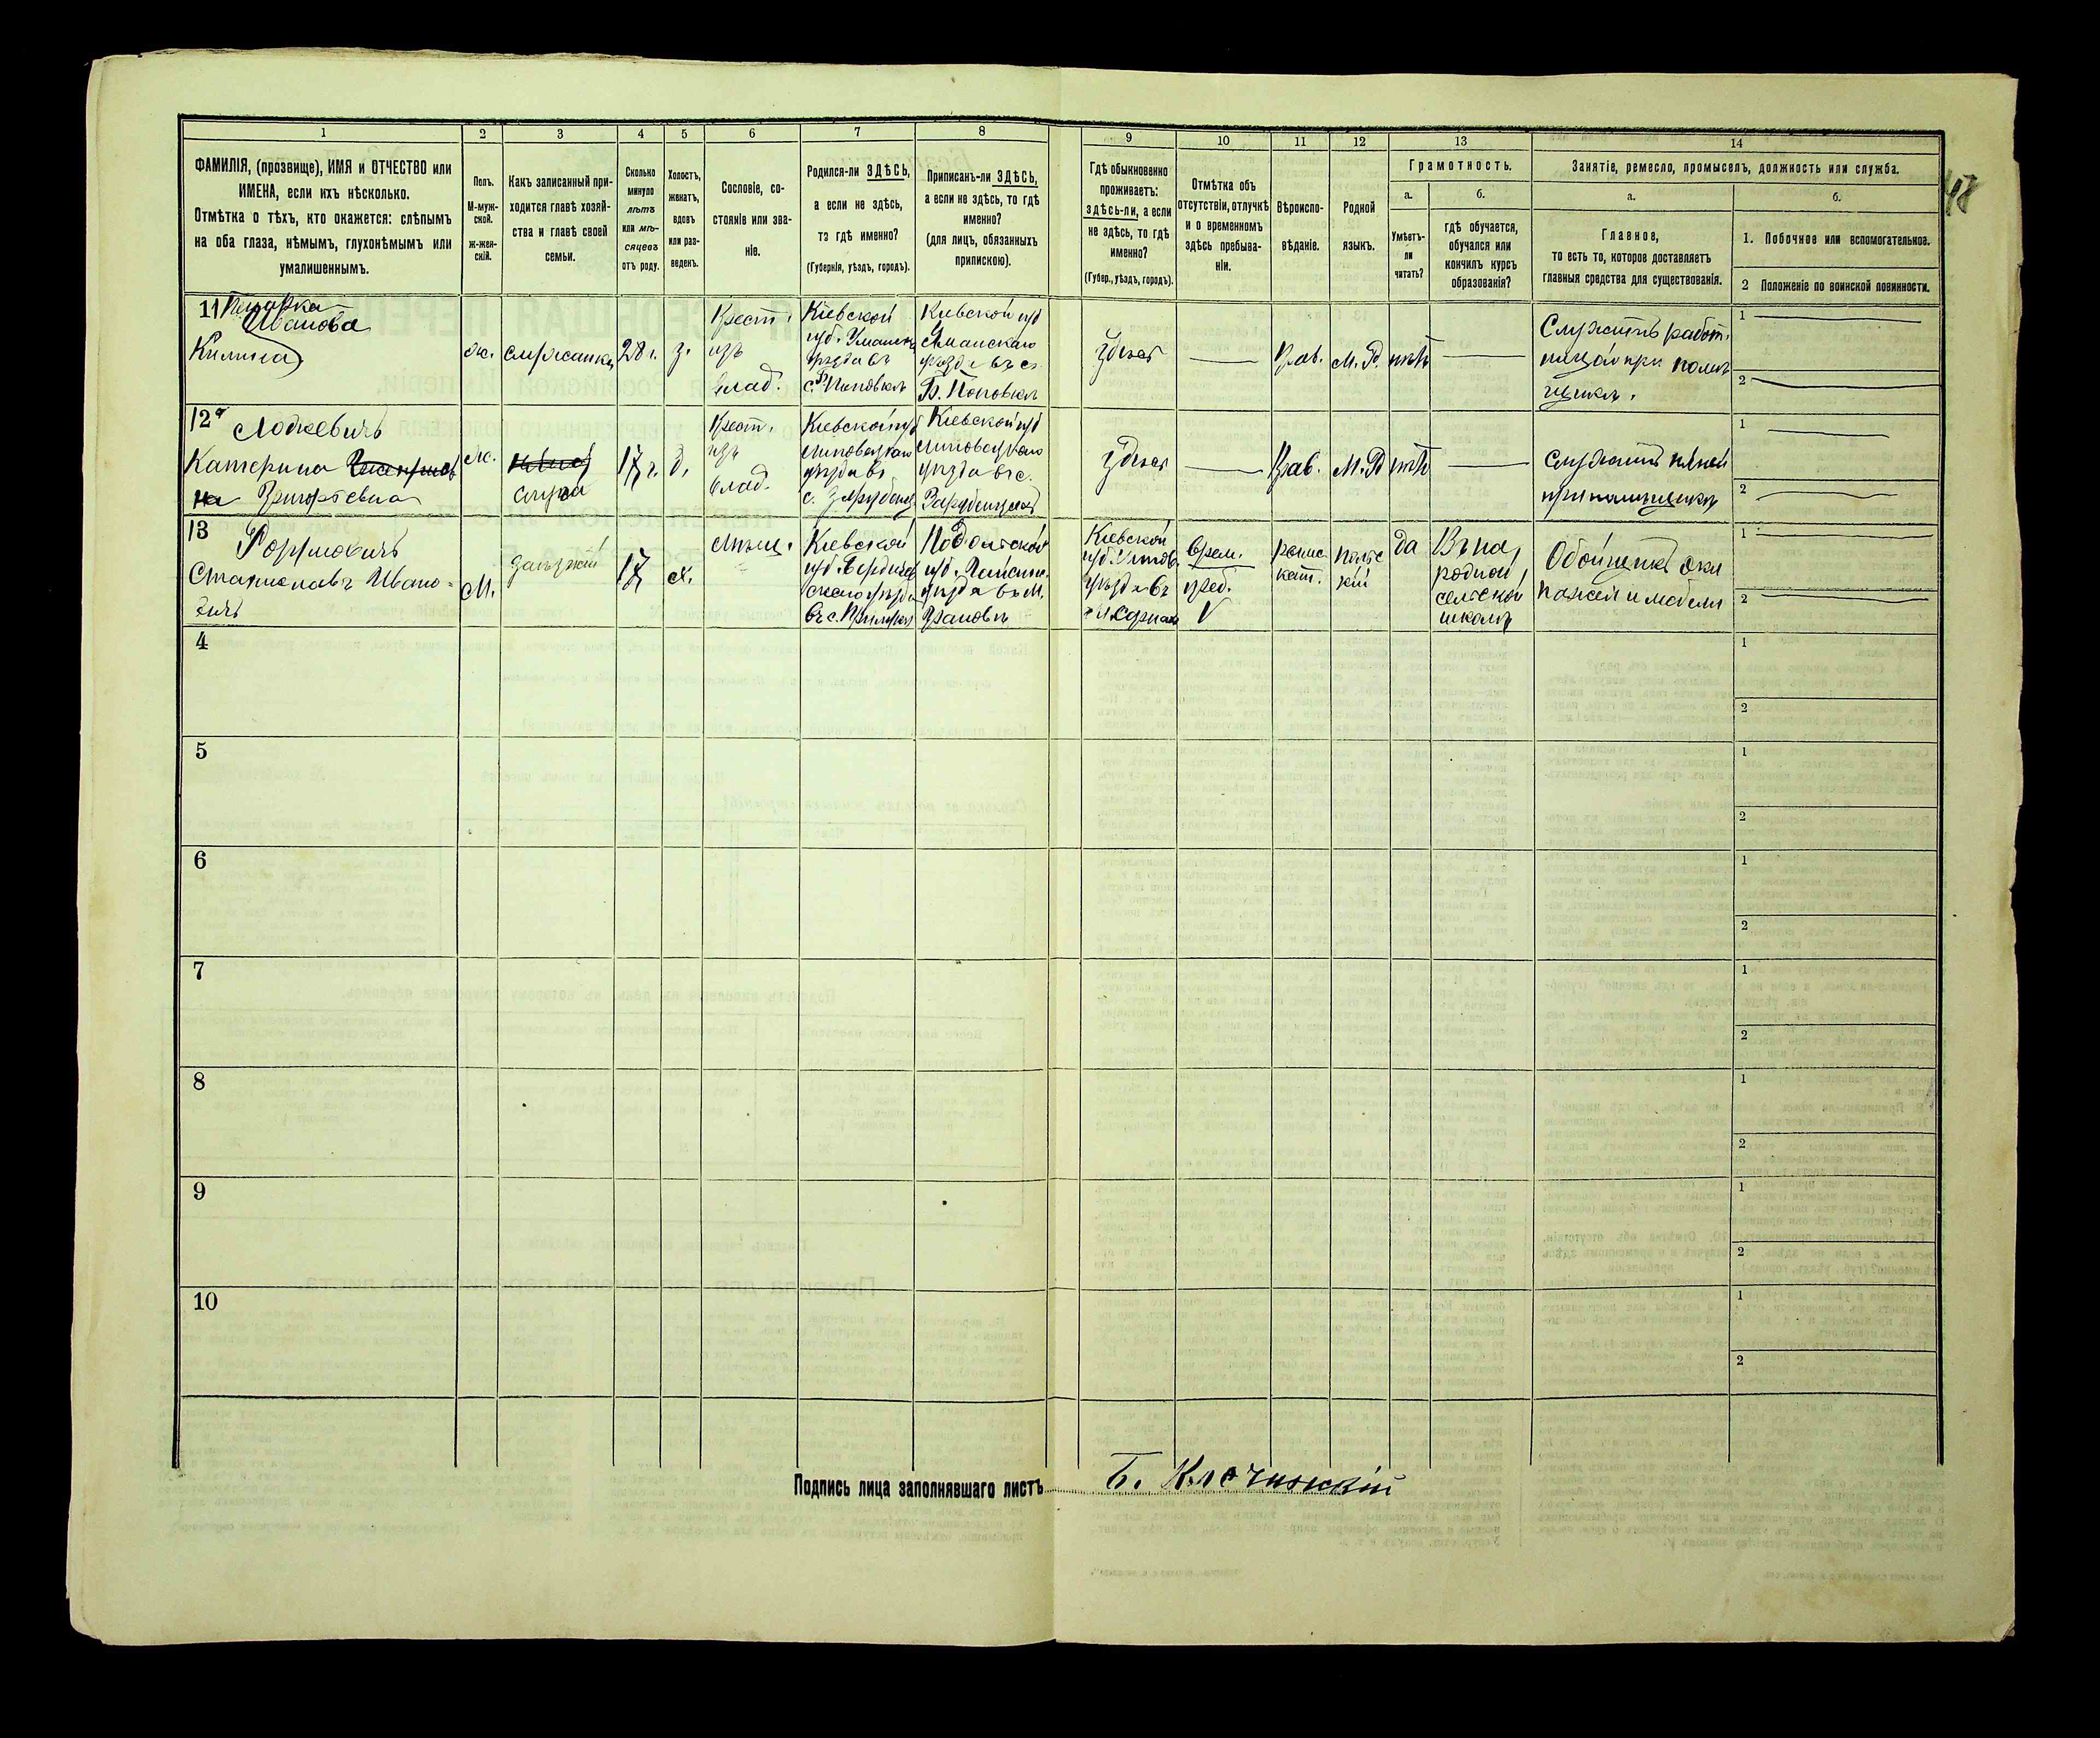 48
1
2
3
4
5
6
7
8
9
10
11
12
13
14
ФАМИЛІЯ, (прозвище), ИМЯ и ОТЧЕСТВО или
ИМЕНА, если ихъ нѣсколько.
Отмѣтка о тѣхъ, кто окажется: слѣпымъ
на оба глаза, нѣмымъ, глухонѣмымъ или
умалишеннымъ.
Полъ.
М-муж-
ской.
Ж-жен-
скій.
Какъ записанный при-
ходится главѣ хозяй-
ства и главѣ своей
семьи.
Сколько
минуло
лѣтъ
или мѣ-
сяцевъ
отъ роду.
Холостъ,
женатъ,
вдовъ
или раз-
веденъ.
Сословіе, со-
стояніе или зва-
ніе.
Родился-ли ЗДѢСЬ,
а если не здѣсь,
то гдѣ именно?
(Губернія, уѣздъ, городъ).
Приписанъ-ли ЗДѢСЬ,
а если не здѣсь, то гдѣ
именно?
(для лицъ, обязанныхъ
припискою).
Гдѣ обыкновенно
проживаетъ:
здѣсь-ли, а если
не здѣсь, то гдѣ
именно?
(Губер., уѣздъ, городъ).
Отмѣтка объ
отсутствіи, отлучкѣ
и о временномъ
здѣсь пребыва-
ніи.
Вѣроиспо-
вѣданіе.
Родной
языкъ.
Грамотность.
а.
Умѣетъ-
ли
читать?
б.
гдѣ обучается,
обучался или
кончилъ курсъ
образованія?
Занятіе, ремесло, промыселъ, должность или служба.
а.
Главное,
то есть то, которое доставляетъ
главныя средства для существованія.
б.
1. Побочное или вспомогательное.
2 Положеніе по воинской повинности.
11
Иванова
Килина
ж.
служанка
28 г.
з.
Крест.
изъ
влад.
Кіевской
губ. Уманск.
уѣзда въ
с. Б. Поповкѣ
Кіевской губ
Уманскаго
уѣзда въ с.
Б. Поповкѣ
здѣсь
Прав.
М. Р.
нѣтъ
Служитъ работ.
ницей при помѣ
щикѣ.
1
2
12
Лодкевичъ
Катерина
Григорьевна
ж.
слуга
17 г.
д.
Крест.
изъ
влад.
Кіевской губ
Липовецкаго
уѣзда въ
с. Зарубенц.
Кіевской губ
Липовецкаго
уѣзда въ с.
Зарубенцахъ
здѣсь
Прав.
М. Р
нѣтъ
Служитъ няней
при помѣщикѣ
1
2
13
Станиславъ Ивано-
вичъ
М.
заѣзжій
17
х.
мѣщ.
Кіевской
губ. Бердичев
скаго уѣзда
въ с.
Подольской
губ. Гайсин.
уѣзда въ м.
Грановѣ
Кіевской
губ.
уѣзда въ
врем.
преб.
V
римс
кат.
польс
кій
да
Въ на,
родной,
сельской
школѣ
Обойщикъ эки
пажей и мебели
1
2
4
1
2
5
1
2
6
1
2
7
1
2
8
1
2
9
1
2
10
1
2
Подпись лица заполнявшаго листъ
Б.